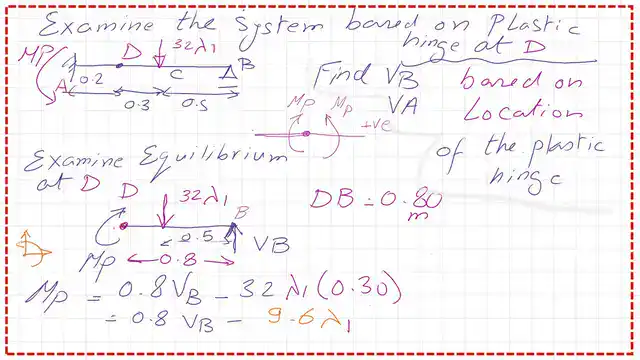 Examine the System based on Plastic
hinge at D
MP D 32λ1
A 0.2 C B
0.3 0.5
Find VB based on
VA Location
of the plastic
hinge
Mp Mp
+ve
Examine Equilibrium
at D
D 32λ1 B
0.5 VB
Mp 0.8
DB = 0.80
m
Mp = 0.8 VB - 32 λ1 (0.30)
= 0.8 VB - 9.6 λ1